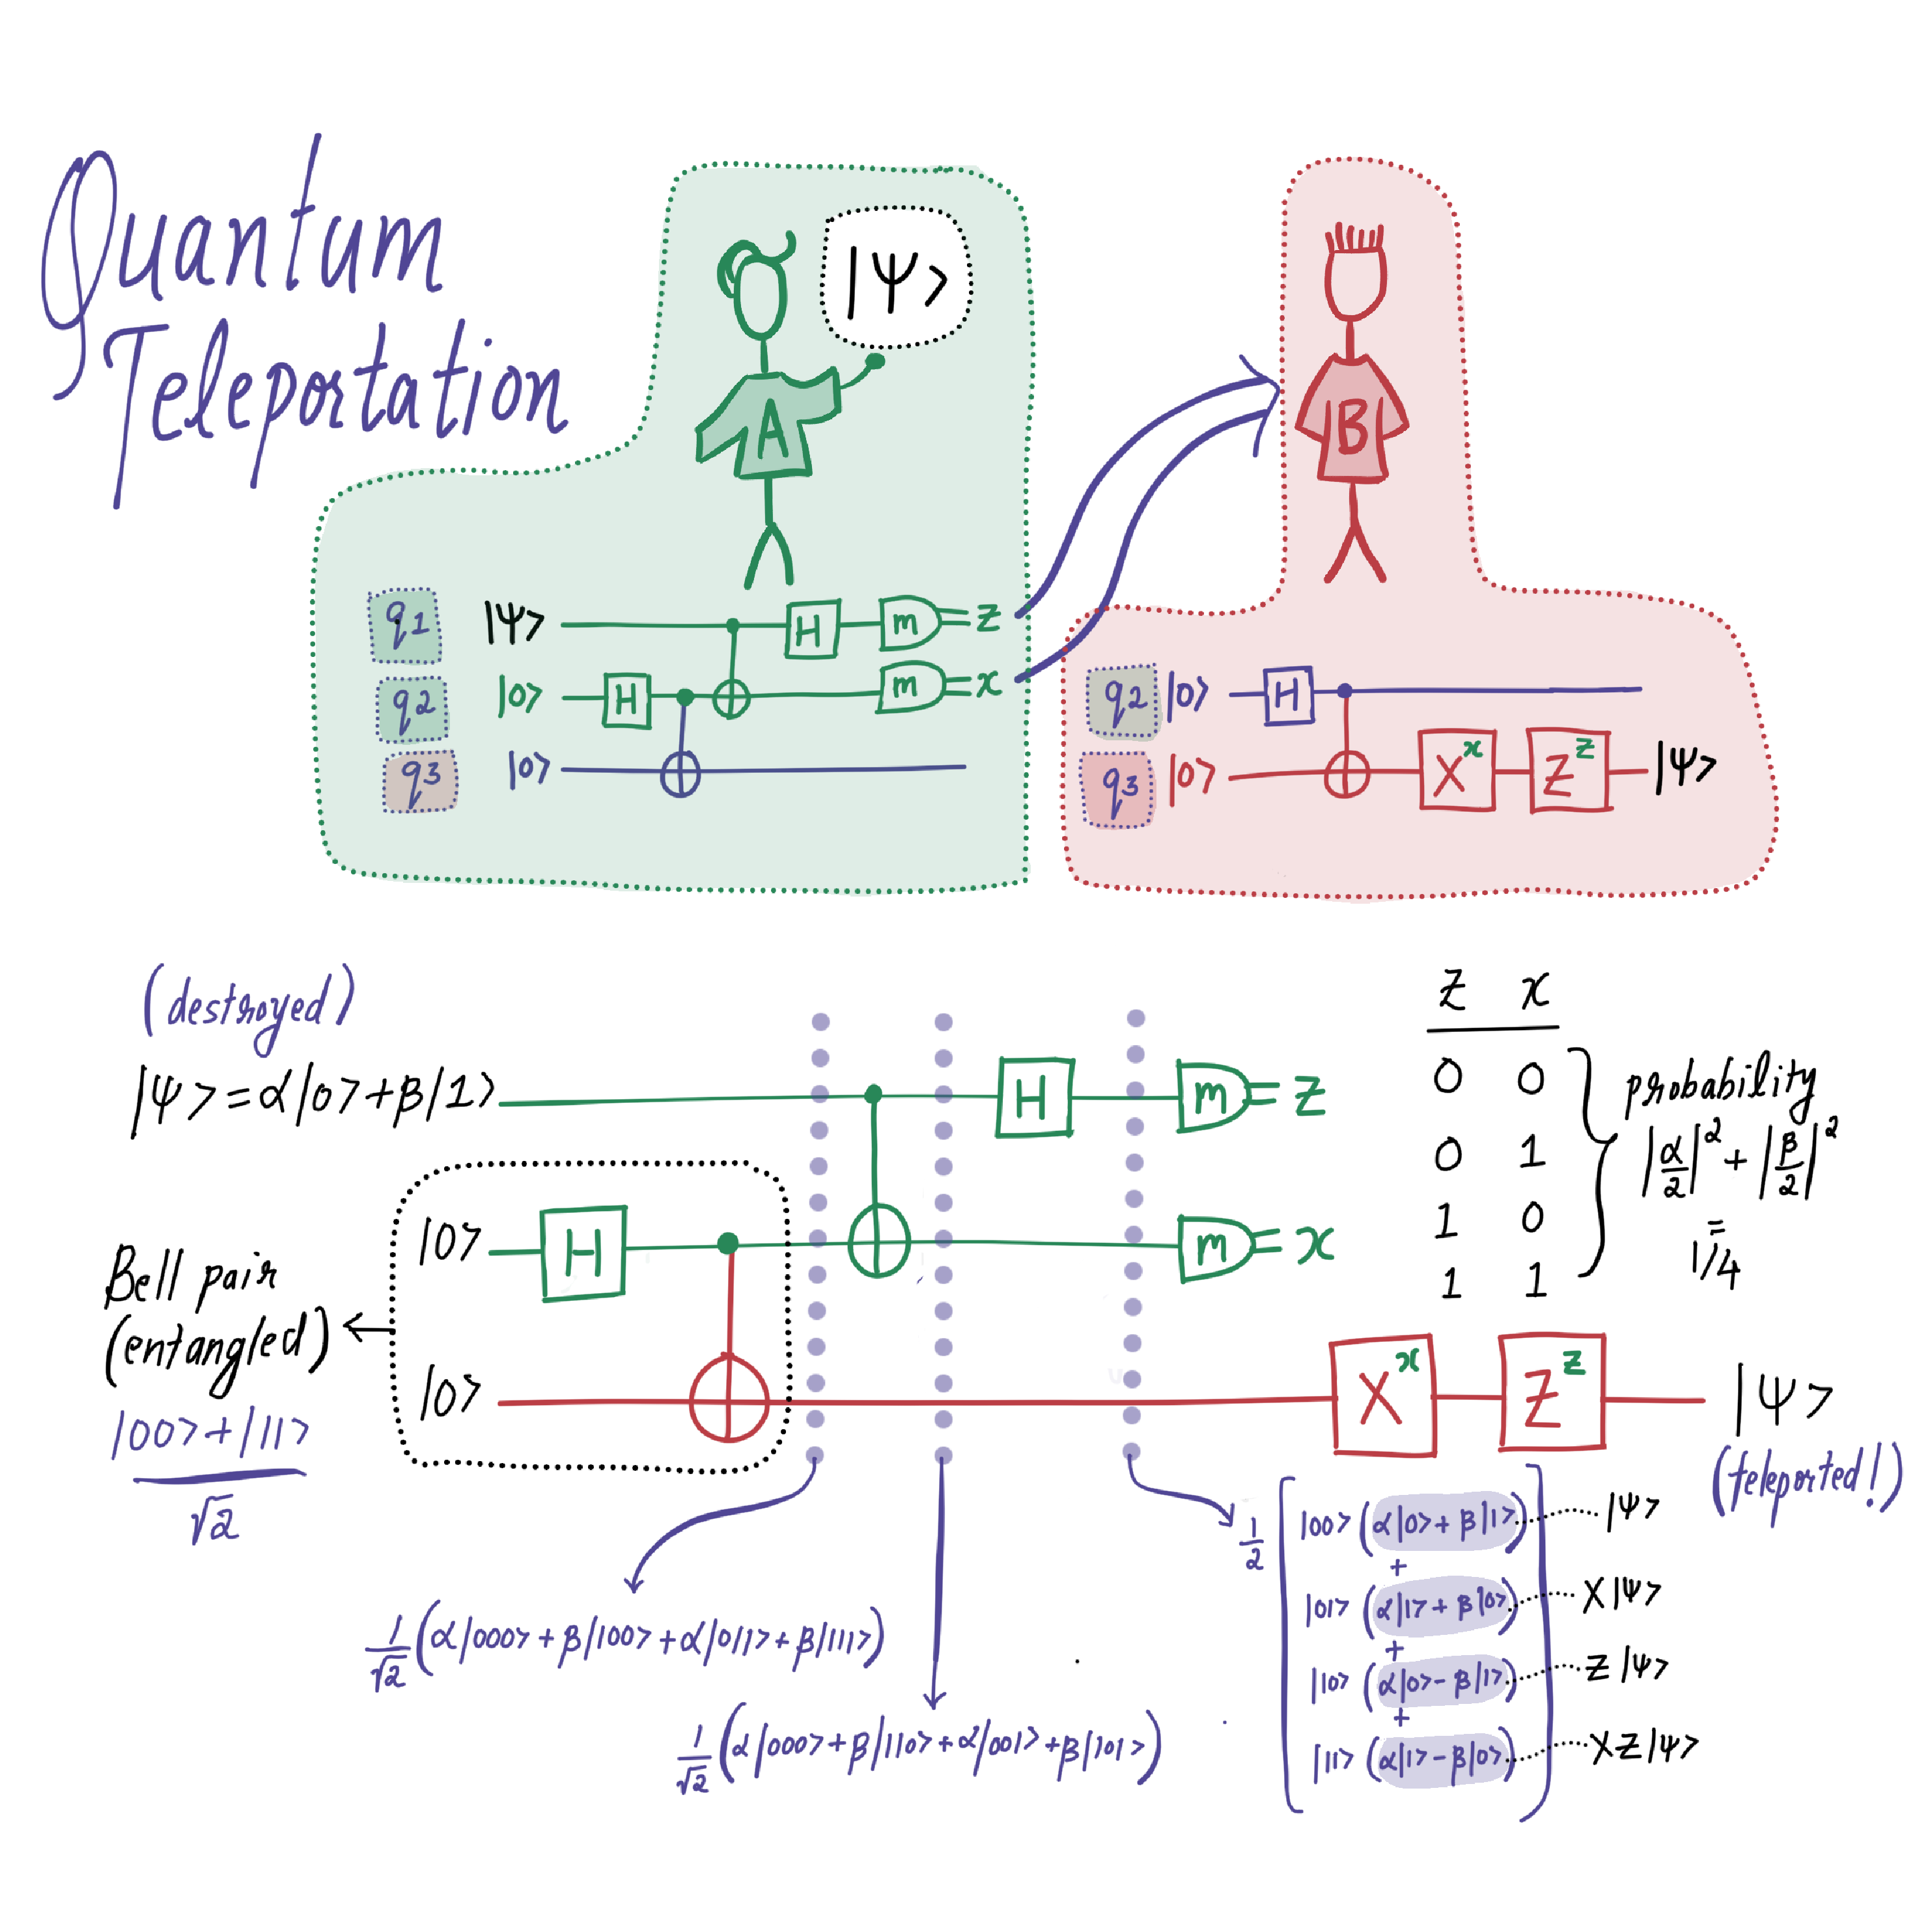 Quantum
Teleportation
|Ψ>
A
B
q1 |Ψ> H m z
q2 |0> H m x
q3 |0>
q2 |0> H
q3 |0> X^x Z^z |Ψ>
(destroyed)
|Ψ> = α|0>+β|1> H m z
|0> H m x
|0> X^x Z^z |Ψ>
(teleported!)
Bell pair
(entangled)
|00>+|11>
√2
z x
0 0
0 1
1 0
1 1
probability
|α/2|² + |β/2|²
=
1/4
1/√2 (α|000> + β|100> + α|011> + β|111>)
1/√2 (α|000> + β|110> + α|001> + β|101>)
1/2 [ |00> (α|0> + β|1>) |Ψ>
+
|01> (α|1> + β|0>) X|Ψ>
+
|10> (α|0> - β|1>) Z|Ψ>
+
|11> (α|1> - β|0>) ] XZ|Ψ>